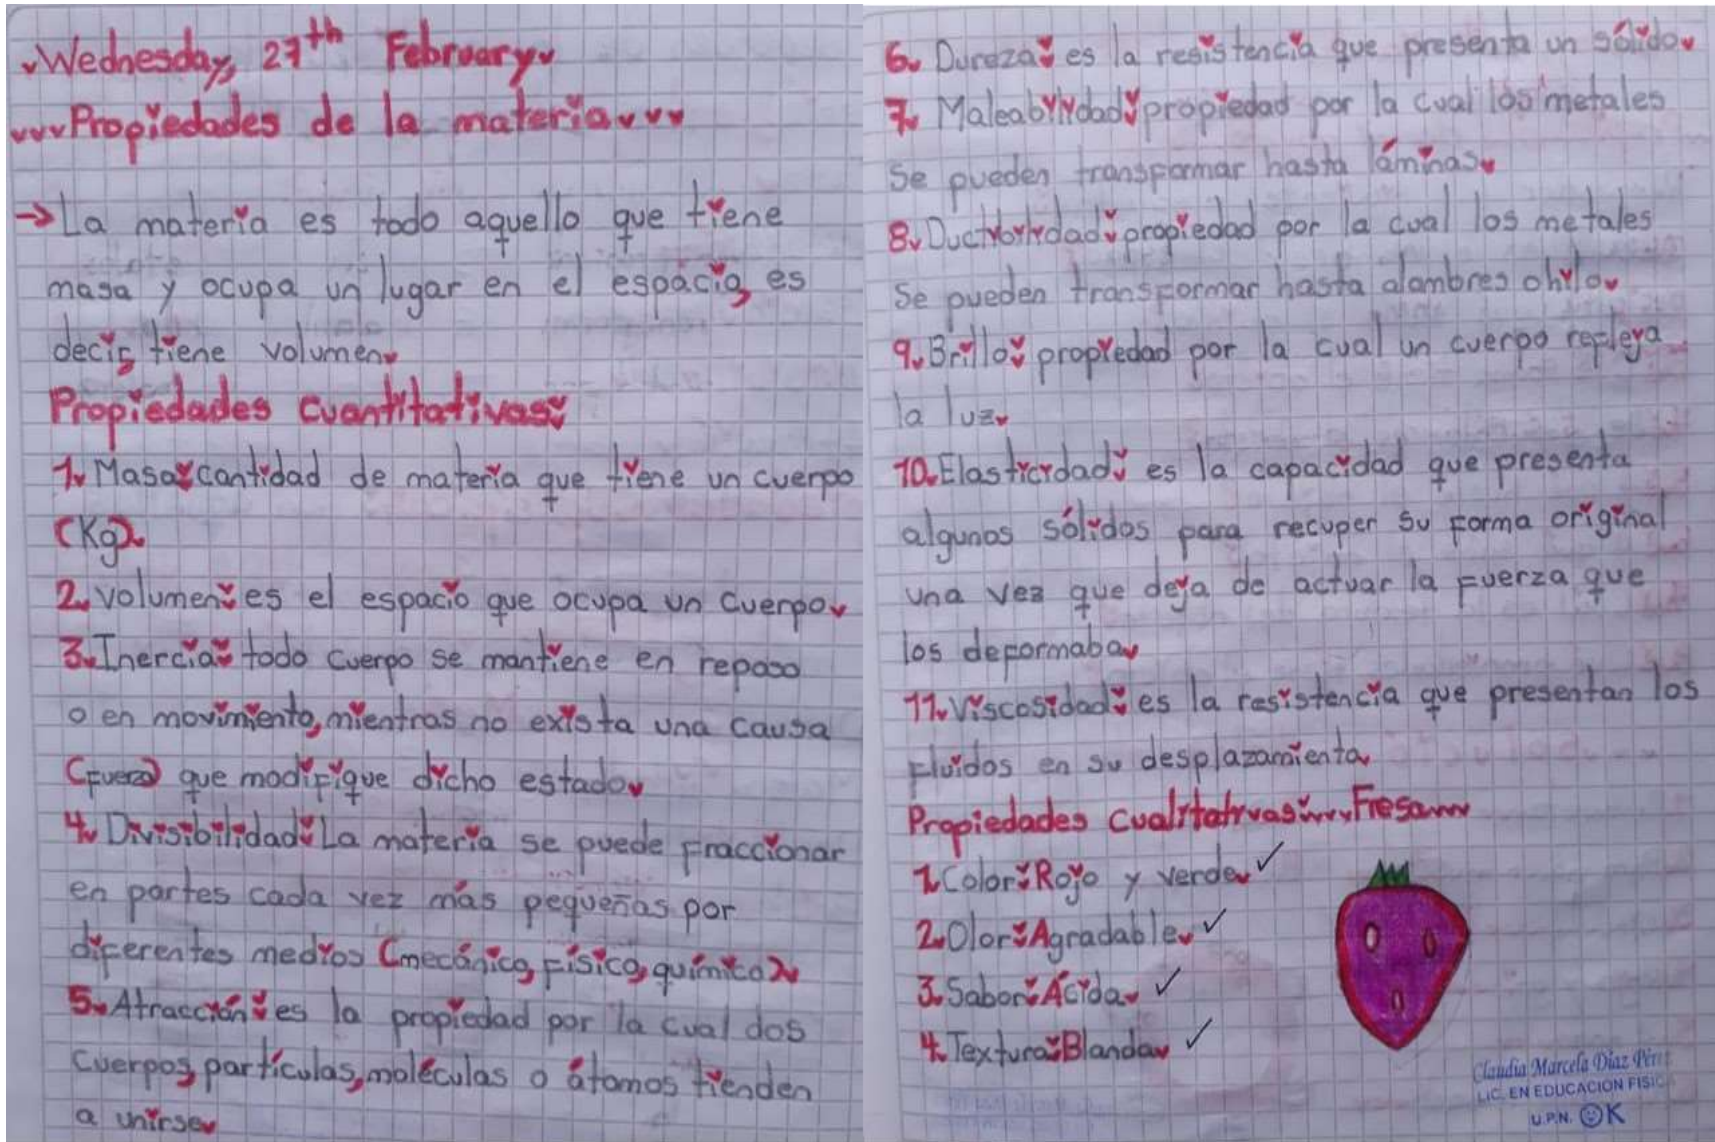 Wednesday, 27th February.
Propiedades de la materia...
→ La materia es todo aquello que tiene
masa y ocupa un lugar en el espacio, es
decir, tiene volumen.
Propiedades cuantitativas:
1. Masa: cantidad de materia que tiene un cuerpo
(Kg).
2. Volumen: es el espacio que ocupa un cuerpo.
3. Inercia: todo cuerpo se mantiene en reposo
o en movimiento, mientras no exista una causa
(fuerza) que modifique dicho estado.
4. Divisibilidad: La materia se puede fraccionar
en partes cada vez más pequeñas por
diferentes medios (mecánico, físico, químico).
5. Atracción: es la propiedad por la cual dos
cuerpos, partículas, moléculas o átomos tienden
a unirse.
6. Dureza: es la resistencia que presenta un sólido.
7. Maleabilidad: propiedad por la cual los metales
se pueden transformar hasta láminas.
8. Ductibilidad: propiedad por la cual los metales
se pueden transformar hasta alambres o hilo.
9. Brillo: propiedad por la cual un cuerpo refleja
la luz.
10. Elasticidad: es la capacidad que presenta
algunos sólidos para recuper su forma original
una vez que deja de actuar la fuerza que
los deformaba.
11. Viscosidad: es la resistencia que presentan los
fluidos en su desplazamiento.
Propiedades cualitativas: ... Fresa...
1. Color: Rojo y verde. ✓
2. Olor: Agradable. ✓
3. Sabor: Ácida. ✓
4. Textura: Blanda. ✓
Claudia Marcela Díaz Pérez
LIC. EN EDUCACION FISICA
U.P.N. OK